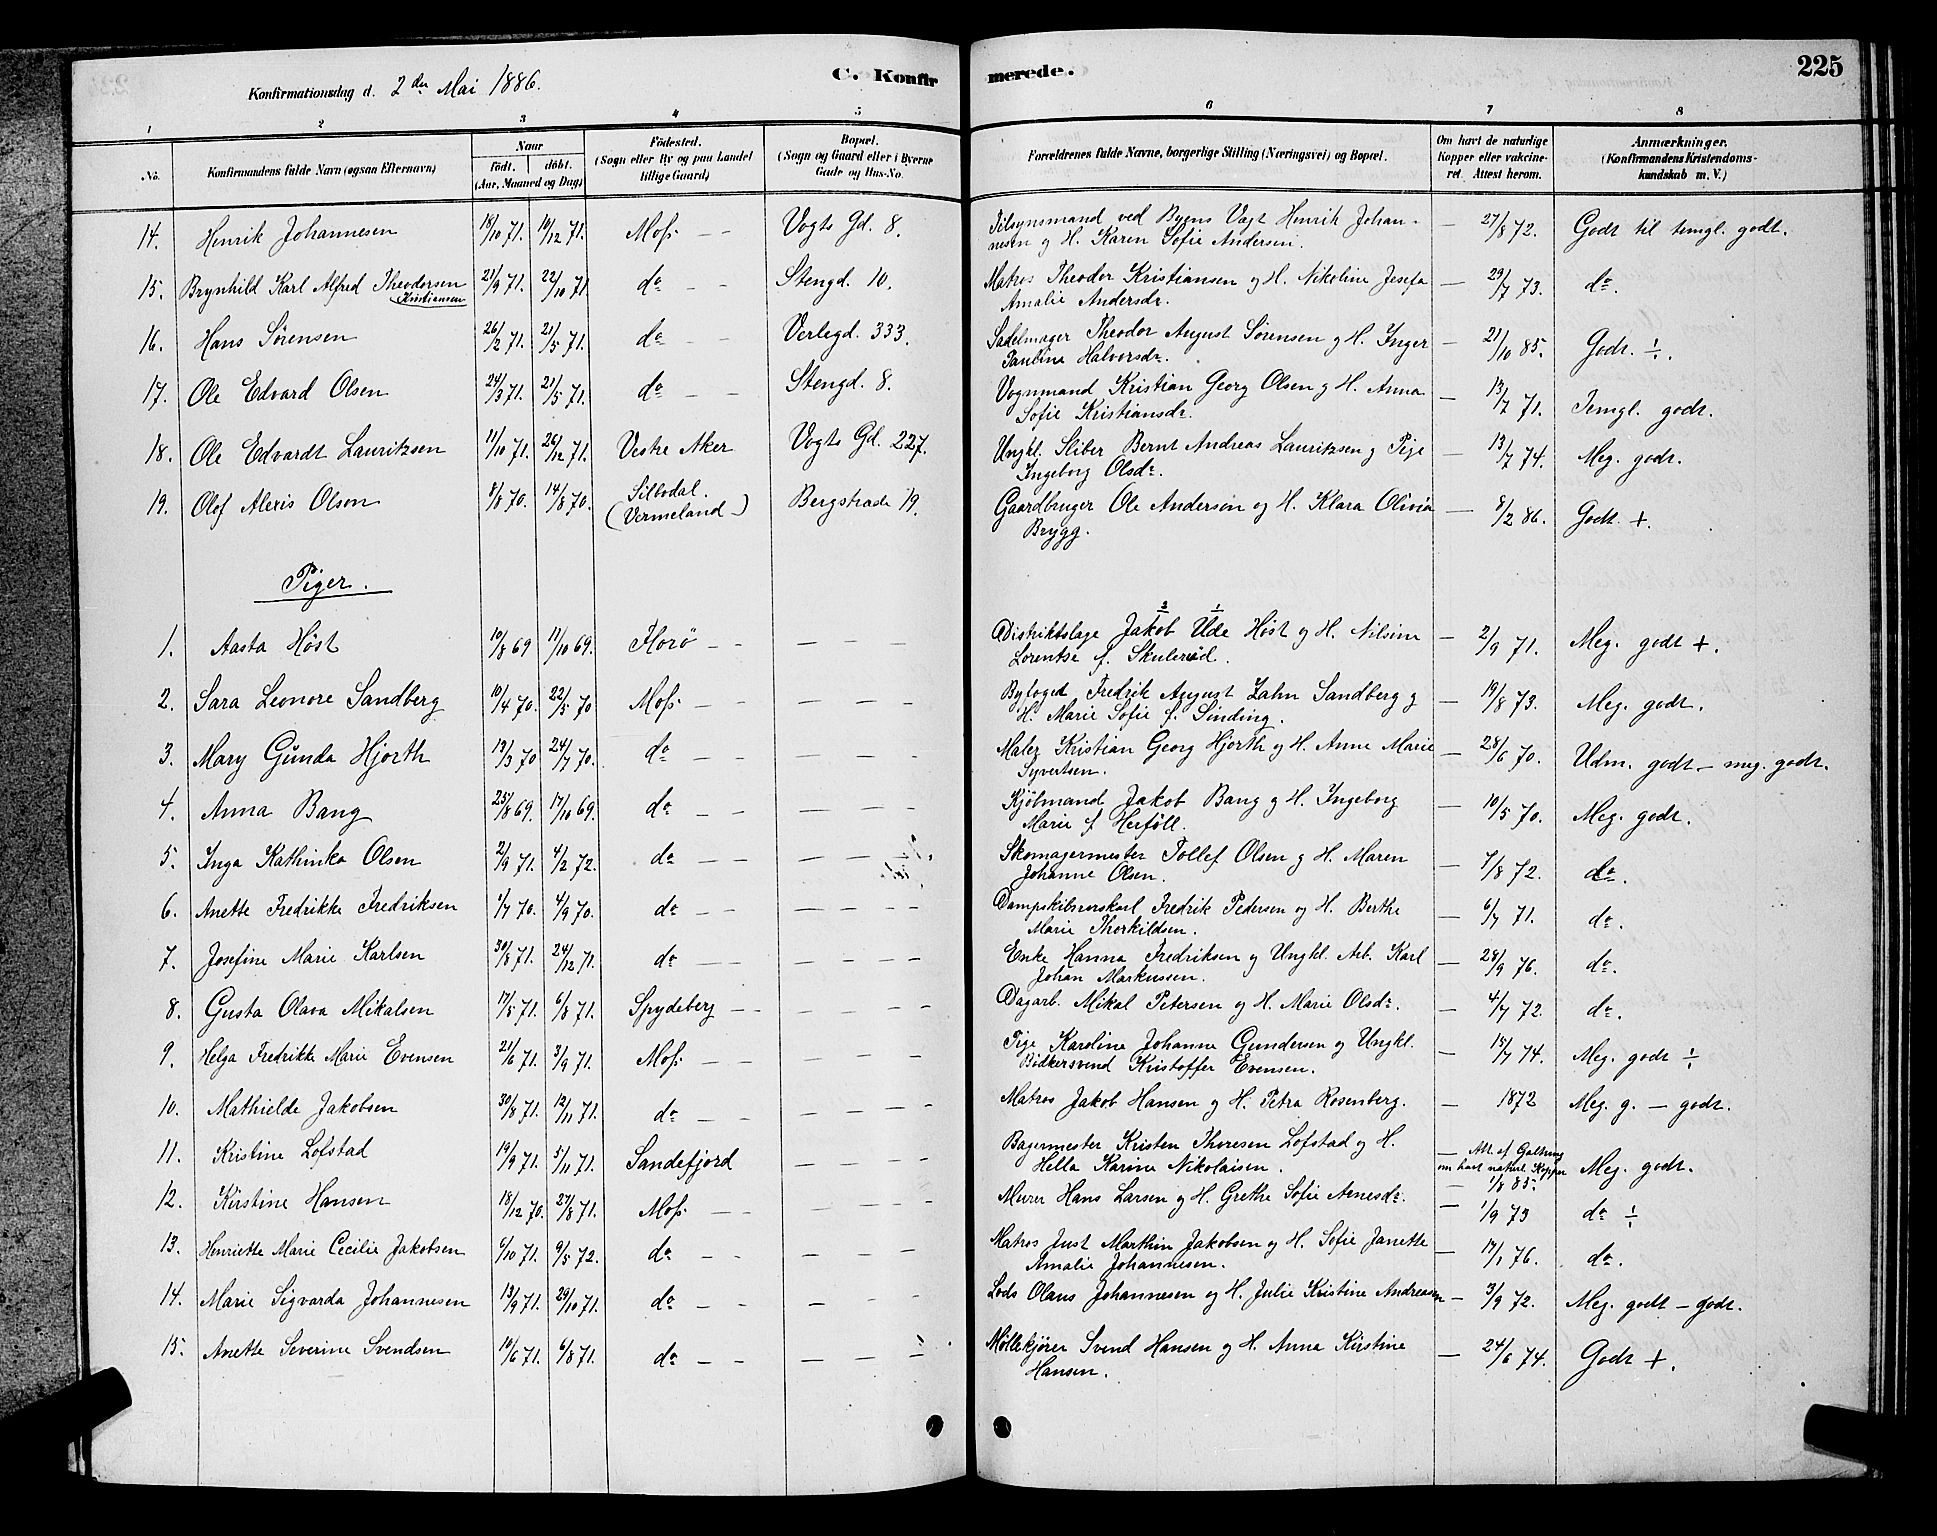 Konfirmationsdag d. 2den Mai 1886.
C. Konfirmerede.
225
1 2 3 4 5 6 7 8
No.
Konfirmandens fulde Navn (ogsaa Efternavn)
Naar
født. døbt.
(Aar, Maaned og Dag)
Fødested.
(Sogn eller By og paa Landet
tillige Gaard)
Bopæl.
(Sogn og Gaard eller i Byerne
Gade og Hus-No.
Forældrenes fulde Navne, borgerlige Stilling (Næringsvei) og Bopæl.
Om havt de naturlige
Kopper eller vakcine-
ret. Attest herom.
Anmærkninger.
(Konfirmandens Kristendoms-
kundskab m. V.)
14. Henrik Johannesen 18/10 71. 10/12 71. Moss - - Vogts Gd. 8. Tilsynsmand ved Byens Vagt Henrik Johan- — 27/8 72. Godt til temgl. godt.
nesen og H. Karen Sofie Andersen.
15. Brynhild Karl Alfred Theodorsen 21/9 71. 22/10 71 do - - Stengd. 10. Matros Theodor Kristiansen og H. Nikoline Josefa — 29/7 73. do.
(Kristiansen) Amalie Andersdr.
16. Hans Sørensen 26/2 71. 21/5 71. do - - Verlegd. 333. Sadelmager Theodor August Sørensen og H. Inger — 21/10 85. Godt. ÷
Paulina Halvorsdr.
17. Ole Edvard Olsen 24/3 71. 21/5 71. do - - Stengd. 8. Vognmand Kristian Georg Olsen og H. Anna — 13/7 71. Temgl. godt.
Sofie Kristiansdr.
18. Ole Edvardt Lauritzsen 11/10 71. 26/12 71. Vestre Aker Vogts Gd. 227. Ungkl. Sliber Bernt Andreas Lauritzsen og Pige — 13/7 74. Meg. godt.
Ingeborg Olsdr.
19. Olof Alexis Olson 8/8 70. 14/8 70. Silbodal. Bergstrade 19. Gaardbruger Ole Anderson og H. Klara Olivia — 8/2 86. Godt. +.
(Vermeland) Brygg.
Piger.
1. Aasta Høst 10/8 69 11/10 69. Florø - - — — — Distriktslæge Jakob Ude Høst og H. Nilsine — 2/9 71. Meg. godt +.
Lorentse f. Skulerud.
2. Sara Leonore Sandberg 10/4 70. 22/5 70 Moss. - - — — — Byfoged Fredrik August Zahn Sandberg og — 19/8 73. Meg. godt.
H. Marie Sofie f. Sinding.
3. Mary Gunda Hjorth 13/3 70 24/7 70. do - - — — — Maler Kristian Georg Hjorth og H. Anne Marie — 28/6 70. Udm. godt – meg. godt.
Syvertsen.
4. Anna Bang 25/8 69. 17/10 69. do - - — — — Kjøbmand Jakob Bang og H. Ingeborg — 10/5 70. Meg. godt.
Marie f. Herføll.
5. Inga Kathinka Olsen 2/9 71. 4/2 72. do - - — — — Skomagermester Tollef Olsen og H. Maren — 7/8 72. do.
Johanne Olsen.
6. Anette Fredrikke Fredriksen 1/7 70. 4/9 70. do - - — — — Dampskibsrorskarl Fredrik Pedersen og H. Berthe — 6/7 71. do.
Marie Thorkildsen.
7. Josefine Marie Karlsen 30/8 71. 24/12 71. do - - — — — Enke Hanna Fredriksen og Ungkl. Arb. Karl — 28/9 76. do.
Johan Markussen.
8. Gusta Olava Mikalsen 17/5 71. 6/8 71. Spydeberg - - — — — Dagarb. Mikal Petersen og H. Marie Olsdr. — 4/7 72. do.
9. Helga Fredrikke Marie Evensen 21/6 71. 3/9 71. Moss. - - — — — Pige Karoline Johanne Gundersen og Ungkl. — 13/7 74. Meg. godt ÷
Bødkersvend Kristoffer Evensen.
10. Mathielde Jakobsen 30/8 71. 12/11 71. do - - — — — Matros Jakob Hansen og H. Petra Rosenberg. — 1872 Meg. g. – godt.
11. Kristine Lofstad 19/9 71. 5/11 71. Sandefjord — — — Bagermester Kristen Thoresen Lofstad og H. — Att. af Galtung Meg. godt.
Hella Karine Nikolaisen. om havt naturl. Kopper
— 1/8 85.
12. Kirstine Hansen 18/12 70. 27/8 71. Moss. - - — — — Murer Hans Larsen og H. Grethe Sofie Arnesdr. — 1/9 73 do ÷
13. Henriette Marie Cecilie Jakobsen 6/10 71. 9/5 72. do - - — — — Matros Just Marthin Jakobsen og H. Sofie Janette — 17/1 76. do.
Amalie Johannesen.
14. Marie Sigvarda Johannesen 13/9 71. 29/10 71. do - - — — — Lods Olaus Johannesen og H. Julie Kristine Andreasen — 3/9 72. Meg. godt – godt.
15. Anette Severine Svendsen 10/6 71. 6/8 71. do - - — — — Møllekjører Svend Hansen og H. Anna Kirstine — 24/6 74. Godt +.
Hansen.